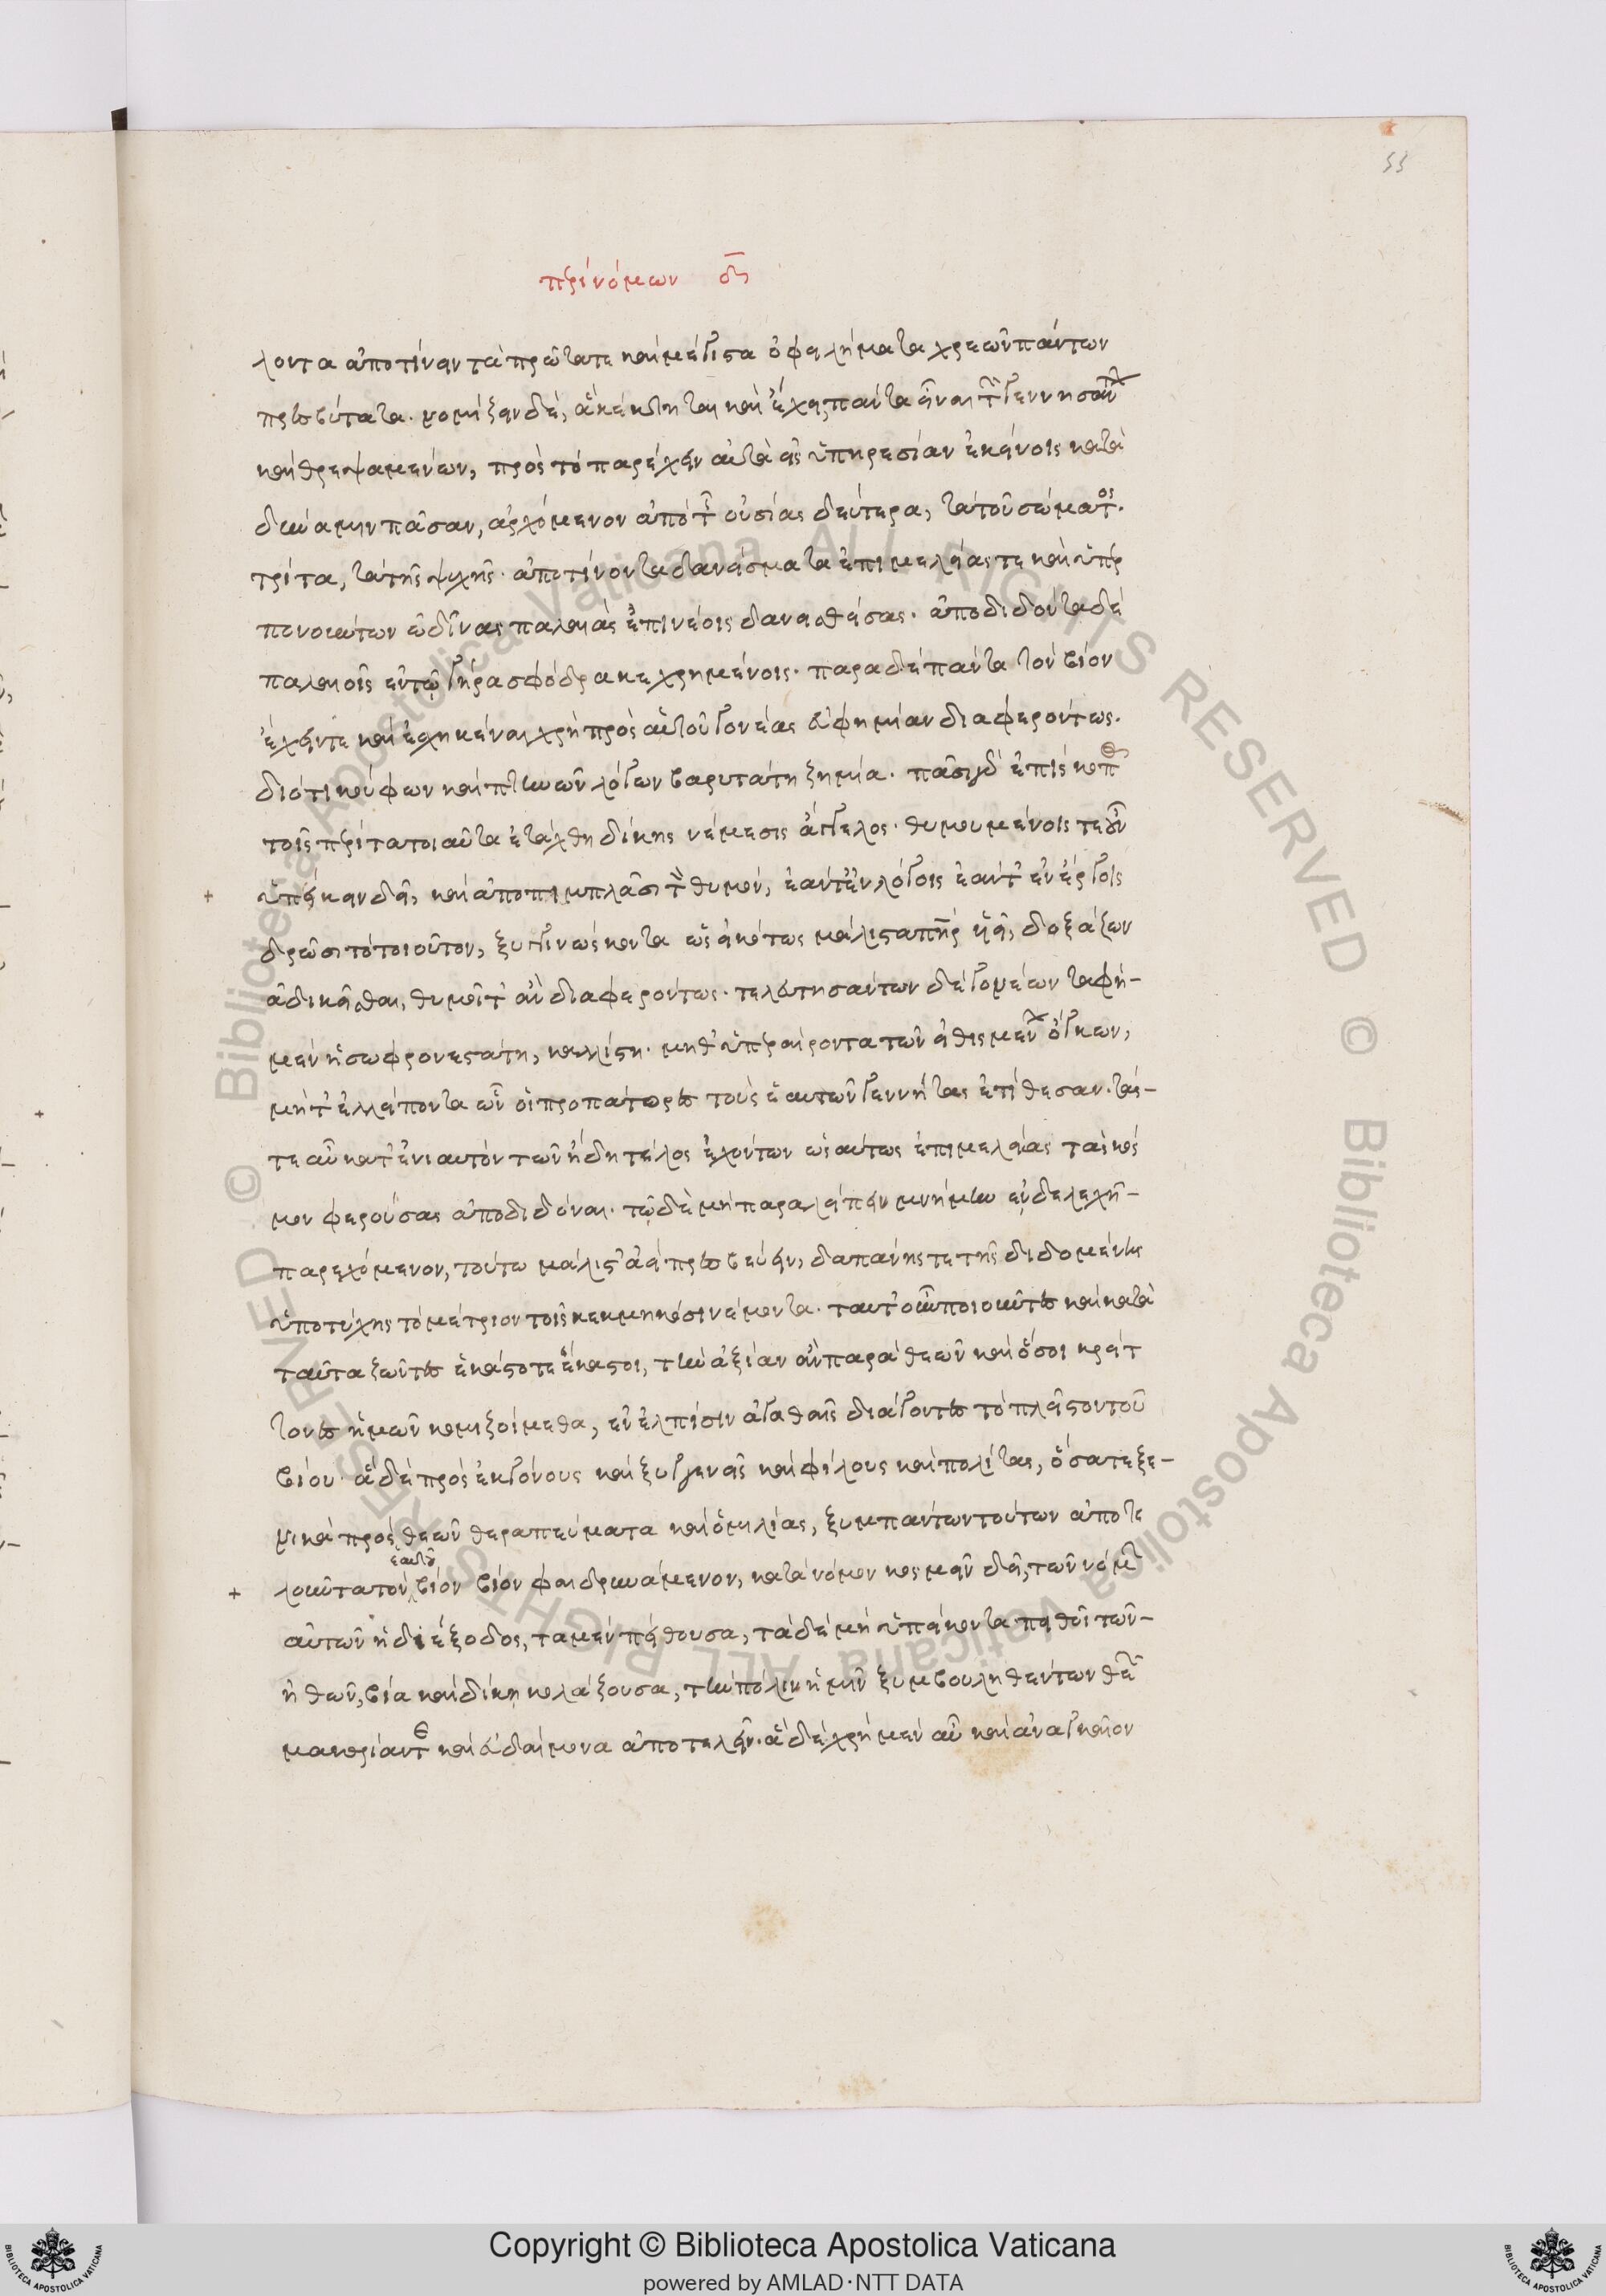 περὶ νόμων δ
55
λοντα ἀποτίνειν τὰ πρῶτά τε καὶ μέγιστα ὀφειλήματα χρεῶν πάντων
πρεσβύτατα. νομίζειν δὲ, ἃ κέκτηται καὶ ἔχει πάντα εἶναι τῶν γεννησάντων
καὶ θρεψαμένων, πρὸς τὸ παρέχειν αὐτὰ εἰς ὑπηρεσίαν ἐκείνοις κατὰ
δύναμιν πᾶσαν, ἀρχόμενον ἀπὸ τῆς οὐσίας δεύτερα, τὰ τοῦ σώματος.
τρίτα, τὰ τῆς ψυχῆς. ἀποτίνοντα δανείσματα ἐπιμελείας τε καὶ ὑπερ
πονούντων ὠδῖνας παλαιὰς ἐπὶ νέοις δανεισθείσας. ἀποδιδόντα δὲ
παλαιοῖς ἐν τῷ γήρᾳ σφόδρα κεχρημένοις. παρὰ δὲ πάντα τὸν βίον
ἔχειν τε καὶ ἐσχηκέναι χρὴ πρὸς αὑτοῦ γονέας εὐφημίαν διαφερόντως.
διότι κούφων καὶ πτηνῶν λόγων βαρυτάτη ζημία. πᾶσι γὰρ ἐπίσκοπος
τοῖς περὶ τὰ τοιαῦτα ἐτάχθη δίκης νέμεσις ἄγγελος. θυμουμένοις τε οὖν
ὑπείκειν δεῖ, καὶ ἀποπιμπλᾶσι τὸν θυμόν, ἐάντ' ἐν λόγοις ἐάντ' ἐν ἔργοις
δρῶσι τὸ τοιοῦτον, ξυγγινώσκοντα ὡς εἰκότως μάλιστα πατὴρ υἱεῖ, δοξάζων
ἀδικεῖσθαι, θυμοῖτ' ἂν διαφερόντως. τελευτησάντων δὲ γονέων ταφὴ
μὲν ἡ σωφρονεστάτη, καλλίστη. μήθ' ὑπεραίροντα τῶν εἰθισμένων ὄγκων,
μήτ' ἐλλείποντα ὧν οἱ προπάτορες τοὺς ἑαυτῶν γεννήτας ἐτίθεσαν. τάς
τε αὖ κατ' ἐνιαυτὸν τῶν ἤδη τέλος ἐχόντων ὡσαύτως ἐπιμελείας τὰς κόσ
μον φερούσας ἀποδιδόναι. τῷ δὲ μὴ παραλείπειν μνήμην ἐνδελεχῆ
παρεχόμενον, τούτῳ μάλιστ' ἀεὶ πρεσβεύειν, δαπάνης τε τῆς διδομένης
ὑπὸ τύχης τὸ μέτριον τοῖς κεκμηκόσι νέμοντα. ταῦτ' οὖν ποιοῦντες καὶ κατὰ
ταῦτα ζῶντες ἑκάστοτε ἕκαστοι, τὴν ἀξίαν ἂν παρὰ θεῶν καὶ ὅσοι κρείτ
τονες ἡμῶν κομιζοίμεθα, ἐν ἐλπίσιν ἀγαθαῖς διάγοντες τὸ πλεῖστον τοῦ
βίου. ἃ δὲ πρὸς ἐκγόνους καὶ ξυγγενεῖς καὶ φίλους καὶ πολίτας, ὅσα τε ξε
νικὰ πρὸς θεῶν θεραπεύματα καὶ ὁμιλίας, ξυμπάντων τούτων ἀποτε
λοῦντα τὸν ἑαυτοῦ βίον βίον φαιδρυνάμενον, κατὰ νόμον κοσμεῖν δεῖ, τῶν νόμων
αὐτῶν ἡ διέξοδος, τὰ μὲν πείθουσα, τὰ δὲ μὴ ὑπείκοντα πειθοῖ τῶν
ἠθῶν, βίᾳ καὶ δίκῃ κολάζουσα, τὴν πόλιν ἡμῖν ξυμβουληθέντων θεῶν
μακαρίαν τε καὶ εὐδαίμονα ἀποτελεῖν. ἃ δὲ χρὴ μὲν αὖ καὶ ἀναγκαῖον
Copyright © Biblioteca Apostolica Vaticana
powered by AMLAD·NTT DATA